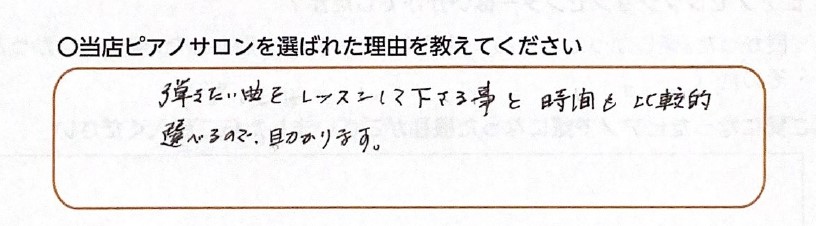 〇当店ピアノサロンを選ばれた理由を教えてください
弾きたい曲をレッスンして下さる事と時間も比較的
選べるので、助かります。